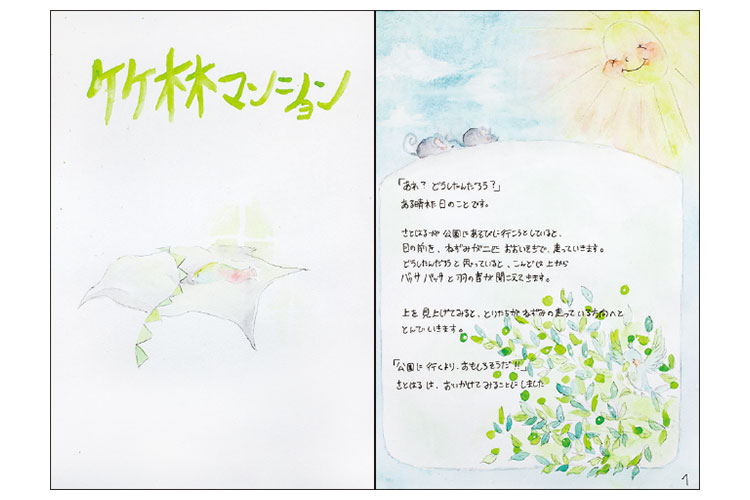 竹林マンション
「あれ？どうしたんだろう？」
ある晴れた日のことです。
さとはるが公園にあそびに行こうとしていると、
目の前を、ねずみが二匹おおいそぎで、走っていきます。
どうしたんだろうと思っていると、こんどは上から
バッサバッサと羽の音が聞こえてきます。
上を見上げてみると、とりたちがねずみの走っている方向へと
とんでいきます。
「公園に行くより、おもしろそうだ!!」
さとはるは、おいかけてみることにしました
1